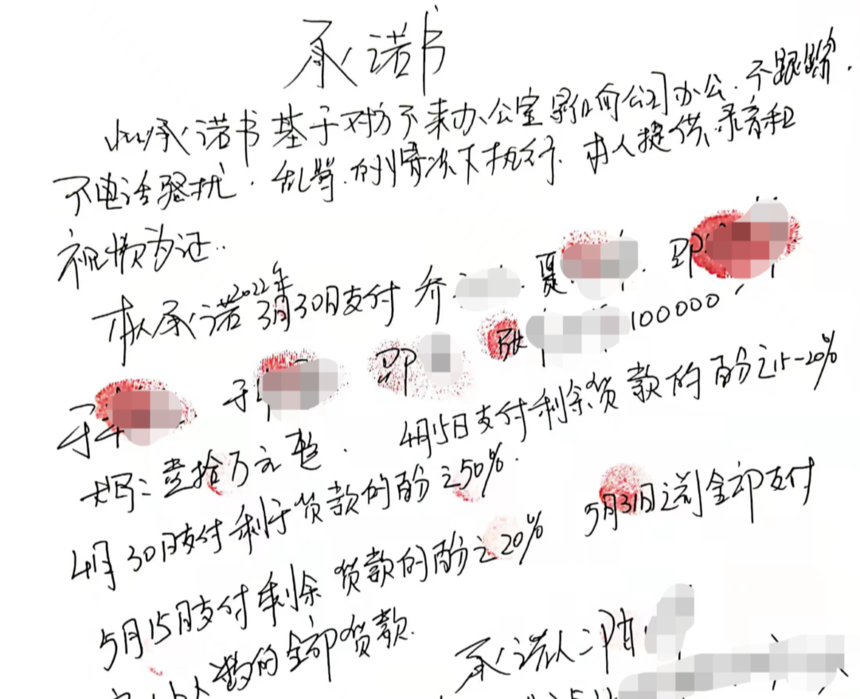 承诺书
此承诺书基于对方不来办公室影响公司办公.不跟踪.
不电话骚扰.乱骂.的情况下执行.本人提供录音和
视频为证..
本人承诺2022年3月30日支付 乔 夏 邵
张 100000
邵
大写:壹拾万元整. 4月15日支付剩余货款的百分之15-20%
4月30日支付剩于货款的百分之50%.
5月15日支付剩余货款的百分之20% 5月31日之前全部支付
的全部货款.
承诺人:陈